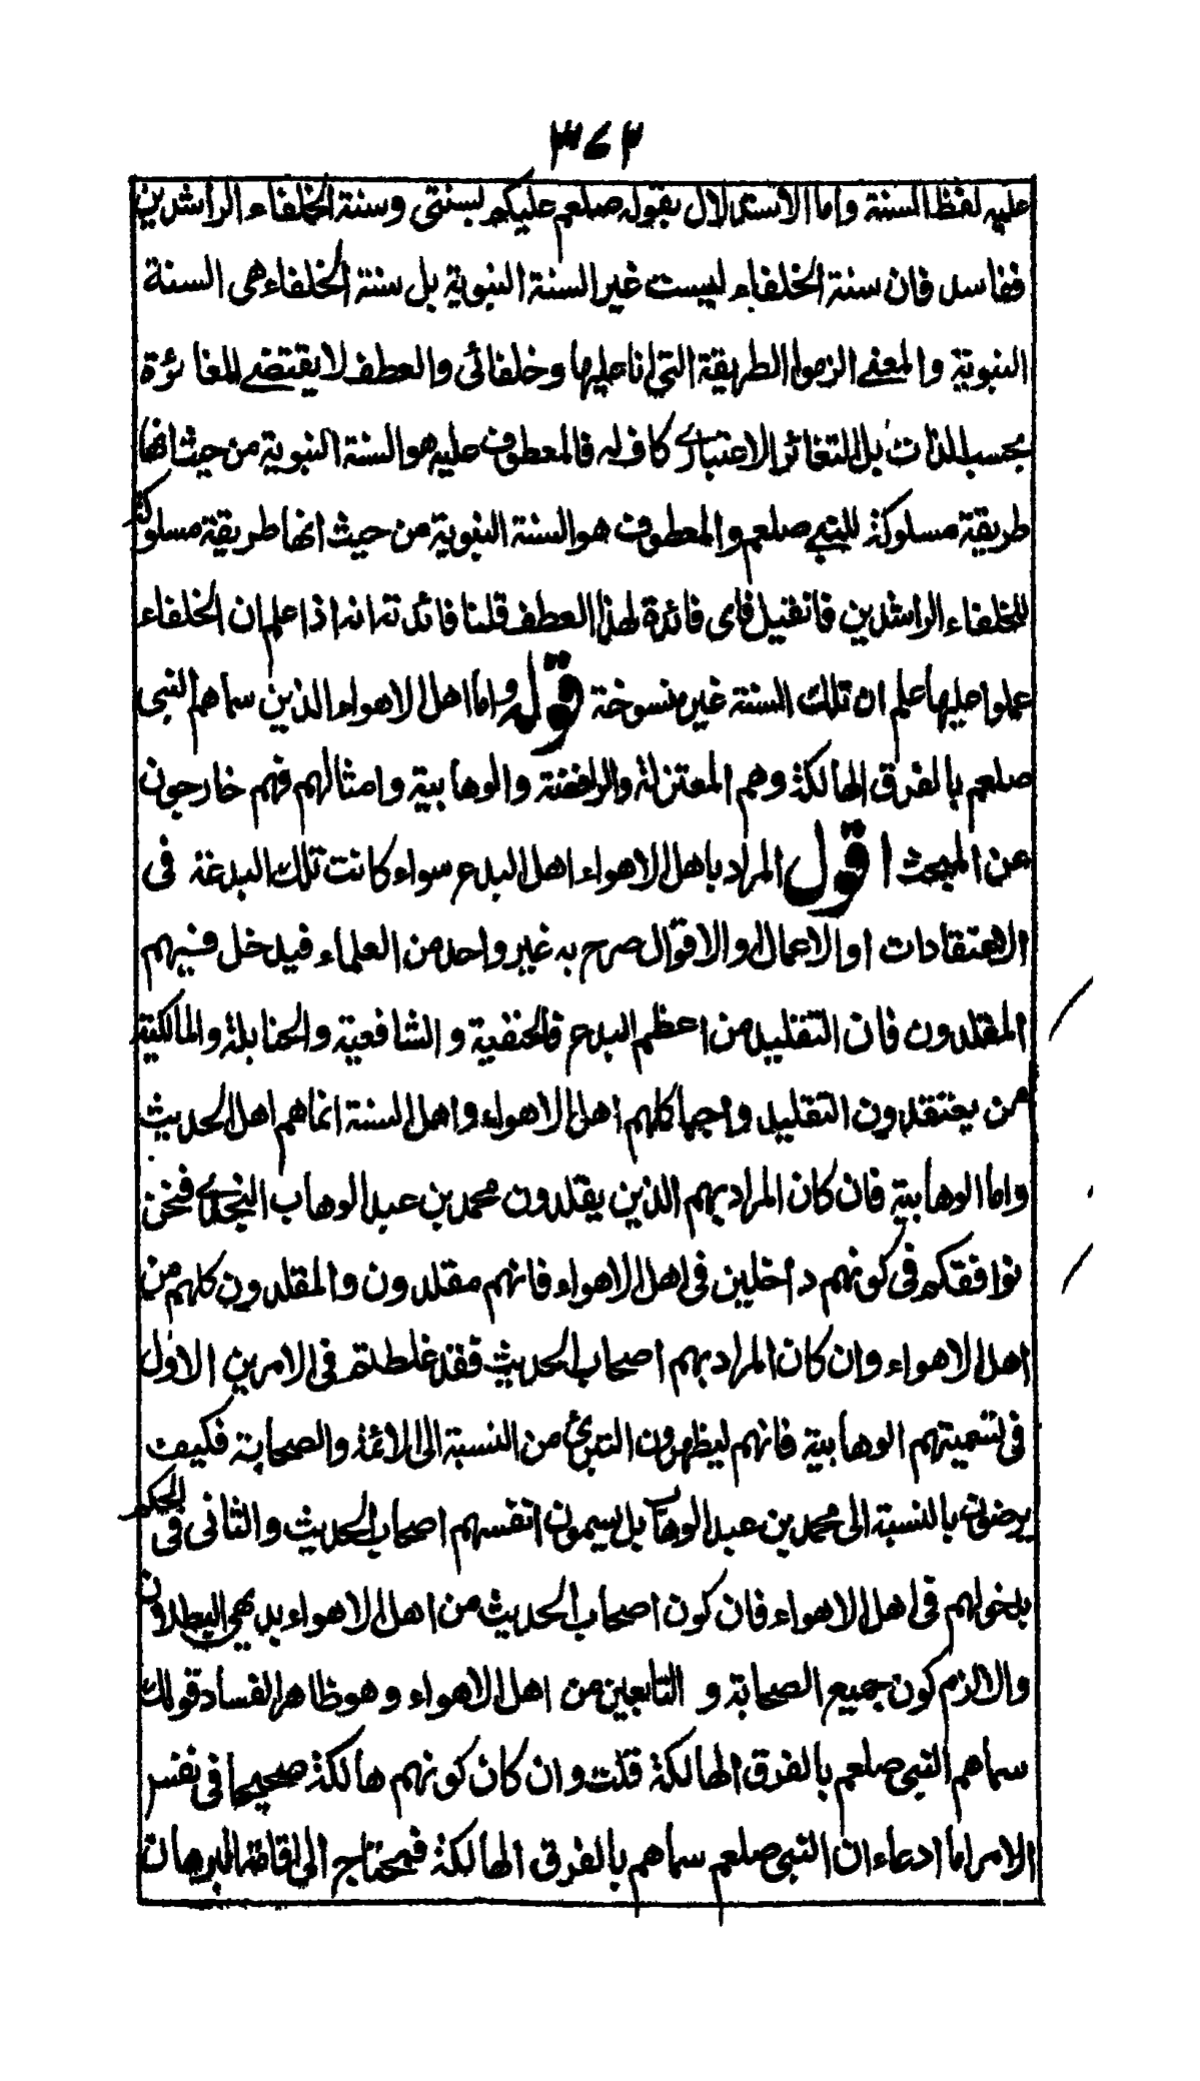 ٣٤٢
عليه لفظ السنة واما الاستدلال بقوله صلعم عليكم بسنتى وسنة الخلفاء الراشدين
ففاسد فان سنة الخلفاء ليست غير السنة النبوية بل سنة الخلفاء هى السنة
النبوية والمعنى الزموا الطريقة التى انا عليها وخلفائى والعطف لا يقتضى المغائرة
بحسب الذات بل التغائر الاعتبارى كاف له فالمعطوف عليه هو السنة النبوية من حيث انها
طريقة مسلوكة للنبى صلعم والمعطوف هو السنة النبوية من حيث انها طريقة مسلوكة
للخلفاء الراشدين فان قيل فاى فائدة لهذا العطف قلنا فائدته انه اذا علم ان الخلفاء
عملوا عليها علم ان تلك السنة غير منسوخة قوله واما اهل الاهواء الذين سماهم النبى
صلعم بالفرق الهالكة وهم المعتزلة والرافضة والوهابية وامثالهم فهم خارجون
عن المبحث اقول المراد باهل الاهواء اهل البدع سواء كانت تلك البدعة فى
الاعتقادات او الاعمال او الاقوال صرح به غير واحد من العلماء فيدخل فيهم
المقلدون فان التقليد من اعظم البدع فالحنفية والشافعية والحنابلة والمالكية
ممن يعتقدون التقليد واجبا كلهم اهل الاهواء واهل السنة انما هم اهل الحديث
واما الوهابية فان كان المراد بهم الذين يقلدون محمد بن عبد الوهاب النجدى فنحن
نوافقكم فى كونهم داخلين فى اهل الاهواء فانهم مقلدون والمقلدون كلهم من
اهل الاهواء وان كان المراد بهم اصحاب الحديث فقد غلطتم فى الامرين الاول
فى تسميتهم الوهابية فانهم ليظهرون التبرئ من النسبة الى الائمة والصحابة فكيف
يرضون بالنسبة الى محمد بن عبد الوهاب بل يسمون انفسهم اصحاب الحديث والثانى فى الحكم
بدخولهم فى اهل الاهواء فان كون اصحاب الحديث من اهل الاهواء بديهى البطلان
والا لزم كون جميع الصحابة و التابعين من اهل الاهواء وهو ظاهر الفساد قولك
سماهم النبى صلعم بالفرق الهالكة قلت وان كان كونهم هالكة صحيحا فى نفس
الامر اما ادعاء ان النبى صلعم سماهم بالفرق الهالكة فمحتاج الى اقامة البرهان